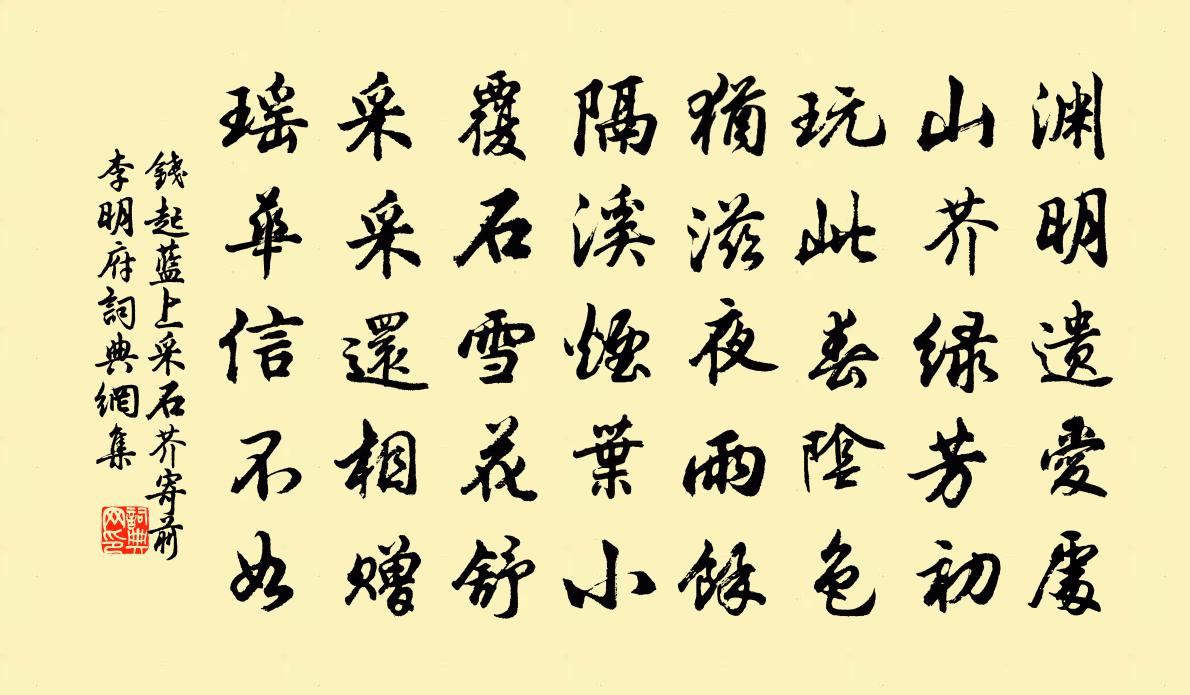 渊明遗愛處
山芥緑芳初
玩此春陰色
猶滋夜雨餘
隔溪煙葉小
覆石雪花舒
采采還相赠
瑶華信不如
錢起藍上采石芥寄前
李明府詞典網集
詞典网印